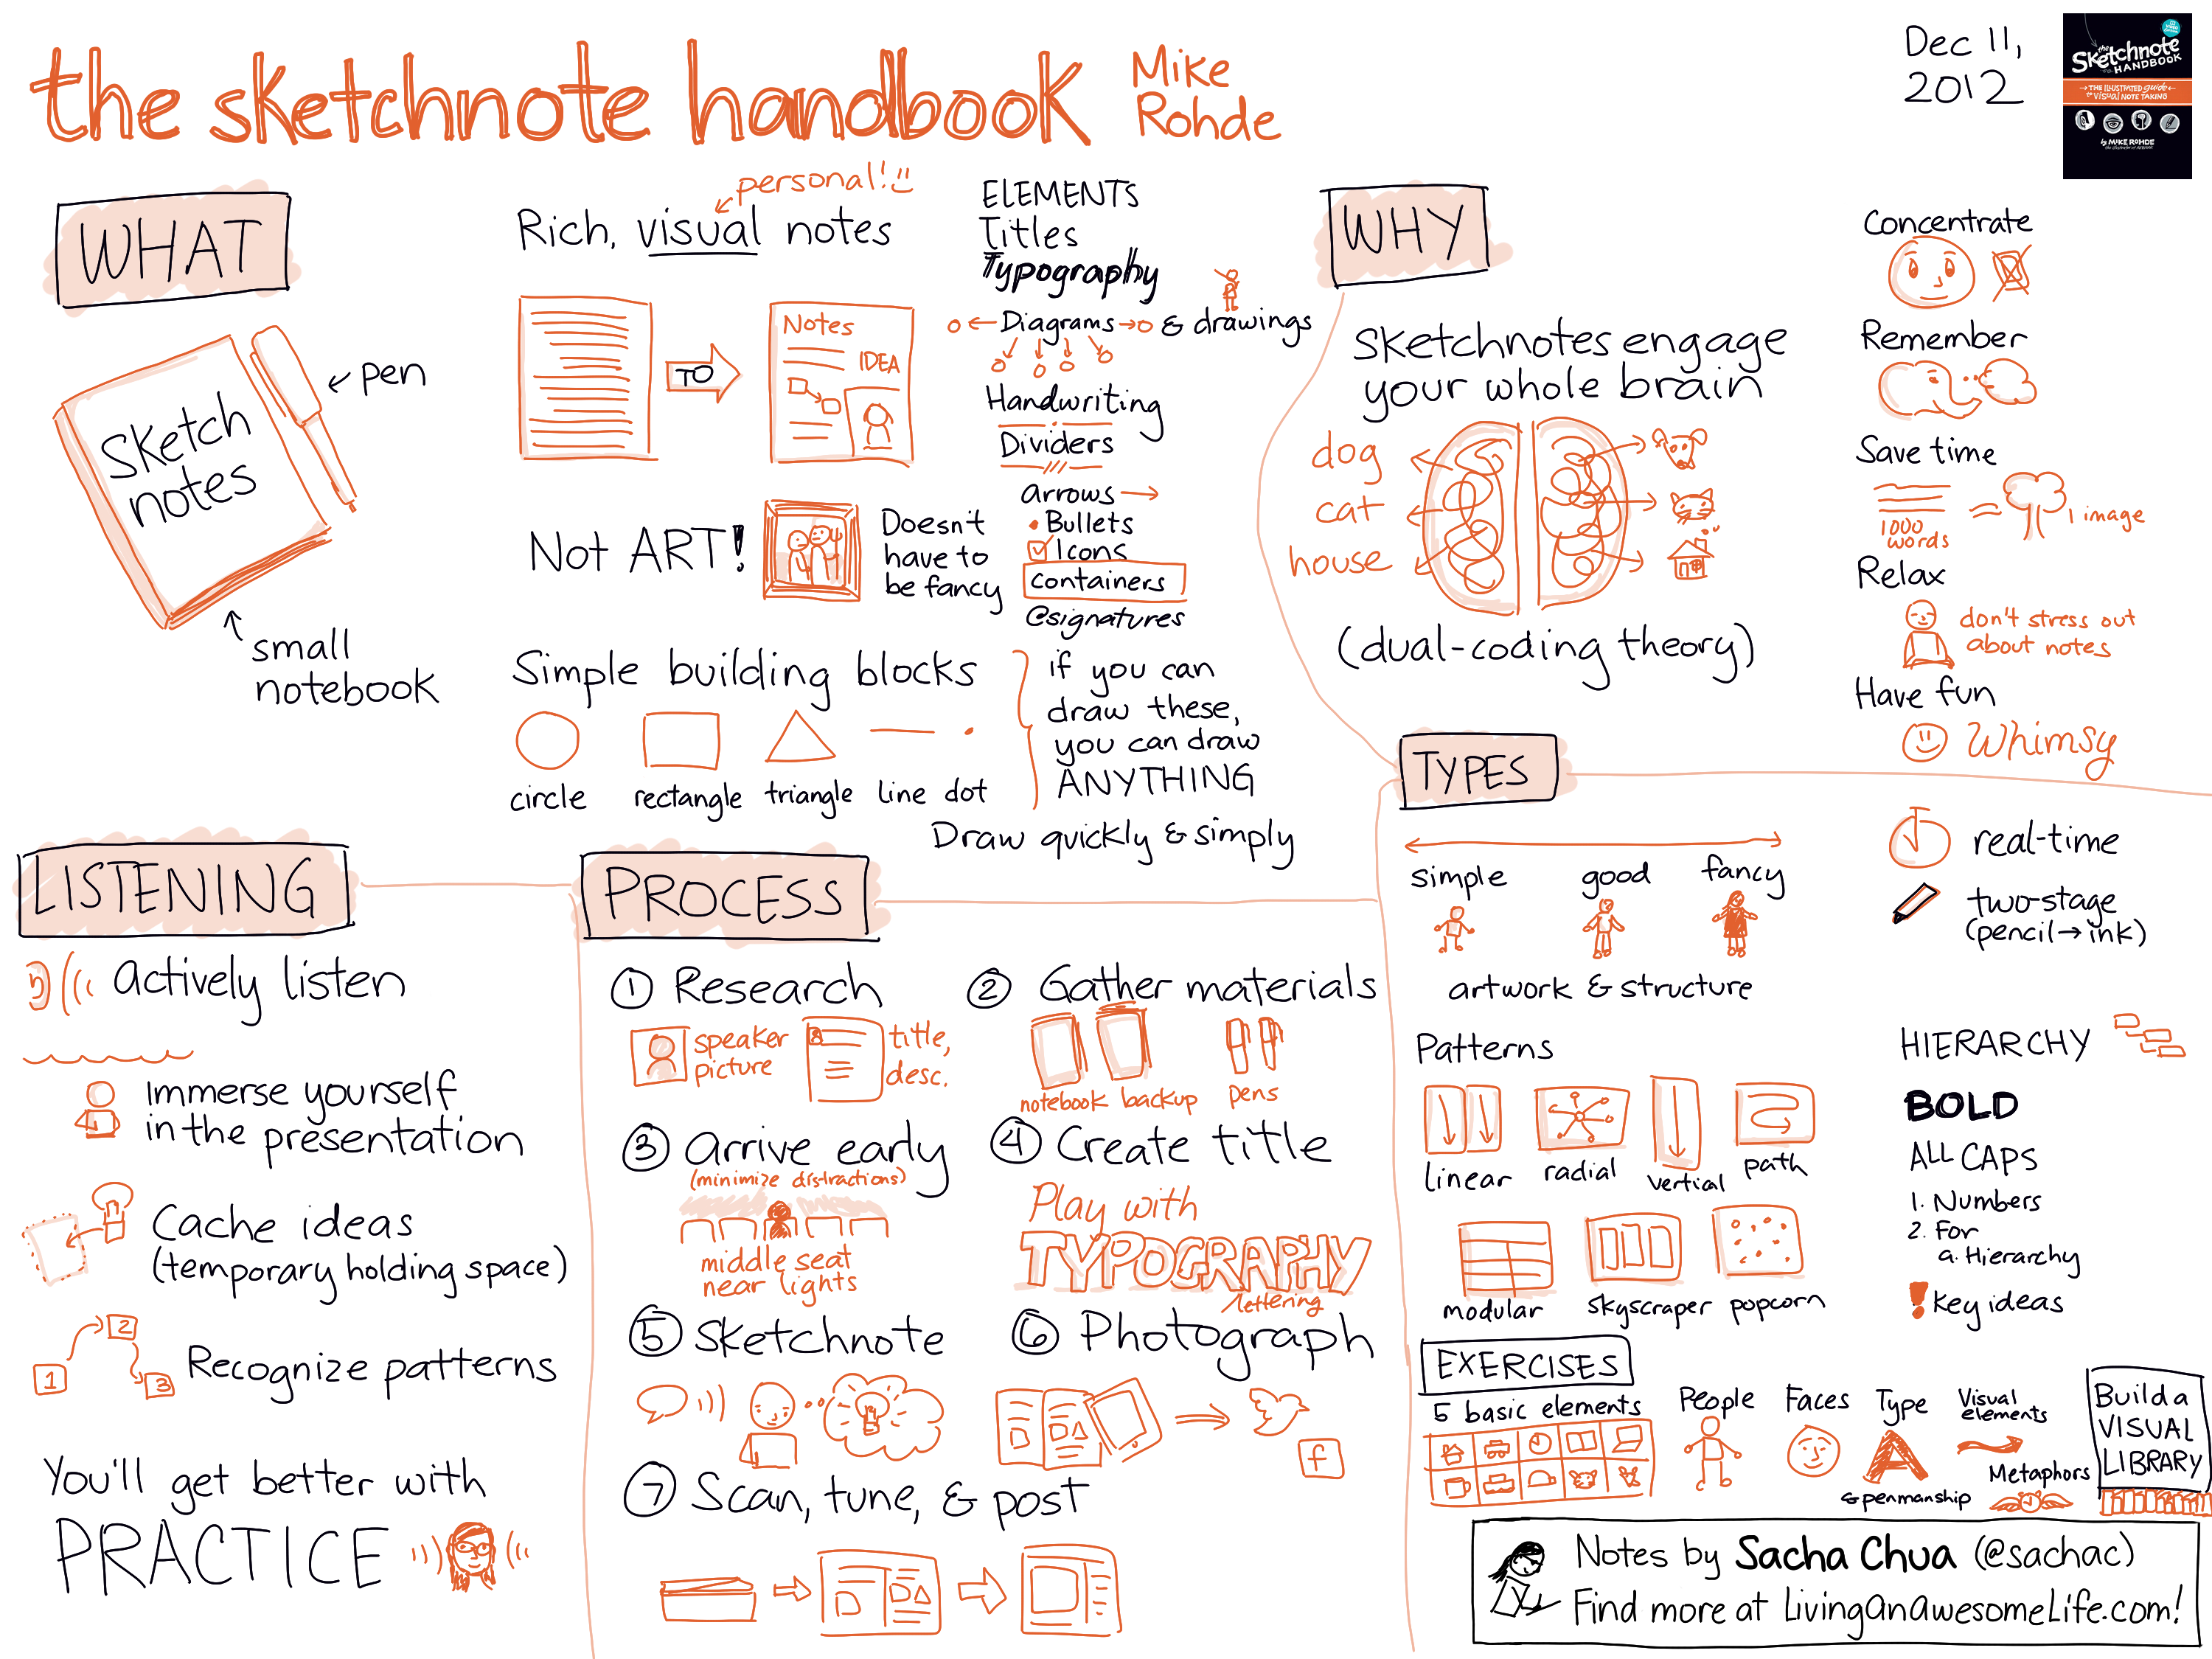 the sketchnote handbook
Mike
Rohde
Dec 11,
2012
the
Sketchnote
HANDBOOK
THE ILLUSTRATED guide
to VISUAL NOTE TAKING
by MIKE ROHDE
WHAT
Sketch
notes
pen
small
notebook
personal!
Rich, visual notes
TO
Notes
IDEA
Not ART!
Doesn't
have to
be fancy
Simple building blocks
circle
rectangle
triangle
line
dot
if you can
draw these,
you can draw
ANYTHING
Draw quickly & simply
ELEMENTS
Titles
Typography
Diagrams
& drawings
Handwriting
Dividers
arrows
• Bullets
Icons
Containers
@signatures
WHY
Sketchnotes engage
your whole brain
dog
cat
house
(dual-coding theory)
Concentrate
Remember
Save time
1000
words
=
1 image
Relax
don't stress out
about notes
Have fun
Whimsy
LISTENING
actively listen
Immerse yourself
in the presentation
Cache ideas
(temporary holding space)
1
2
3
Recognize patterns
You'll get better with
PRACTICE
PROCESS
1 Research
speaker
picture
title,
desc.
2 Gather materials
notebook
backup
pens
3 Arrive early
(minimize distractions)
middle seat
near lights
4 Create title
Play with
TYPOGRAPHY
lettering
5 Sketchnote
6 Photograph
f
7 Scan, tune, & post
TYPES
simple
good
fancy
artwork & structure
real-time
two-stage
(pencil→ink)
Patterns
linear
radial
vertial
path
modular
skyscraper
popcorn
HIERARCHY
BOLD
ALL CAPS
1. Numbers
2. For
a. Hierarchy
! Key ideas
EXERCISES
5 basic elements
People
Faces
Type
A
& penmanship
Visual
elements
Metaphors
Build a
VISUAL
LIBRARY
Notes by Sacha Chua (@sachac)
Find more at LivingAnAwesomeLife.com!